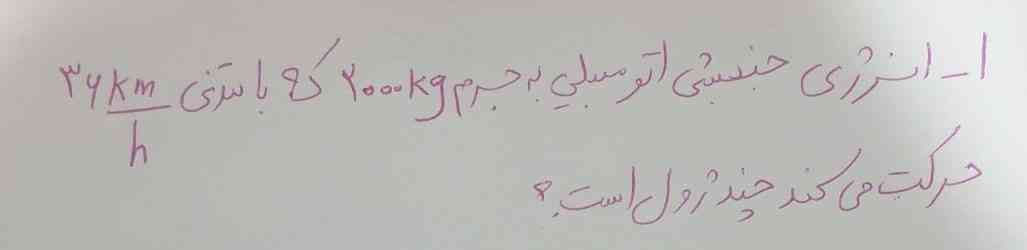 ۱- انرژی جنبشی اتومبیلی به جرم ۲۰۰۰kg که با تندی ۳۶ km/h
حرکت می کند چند ژول است؟